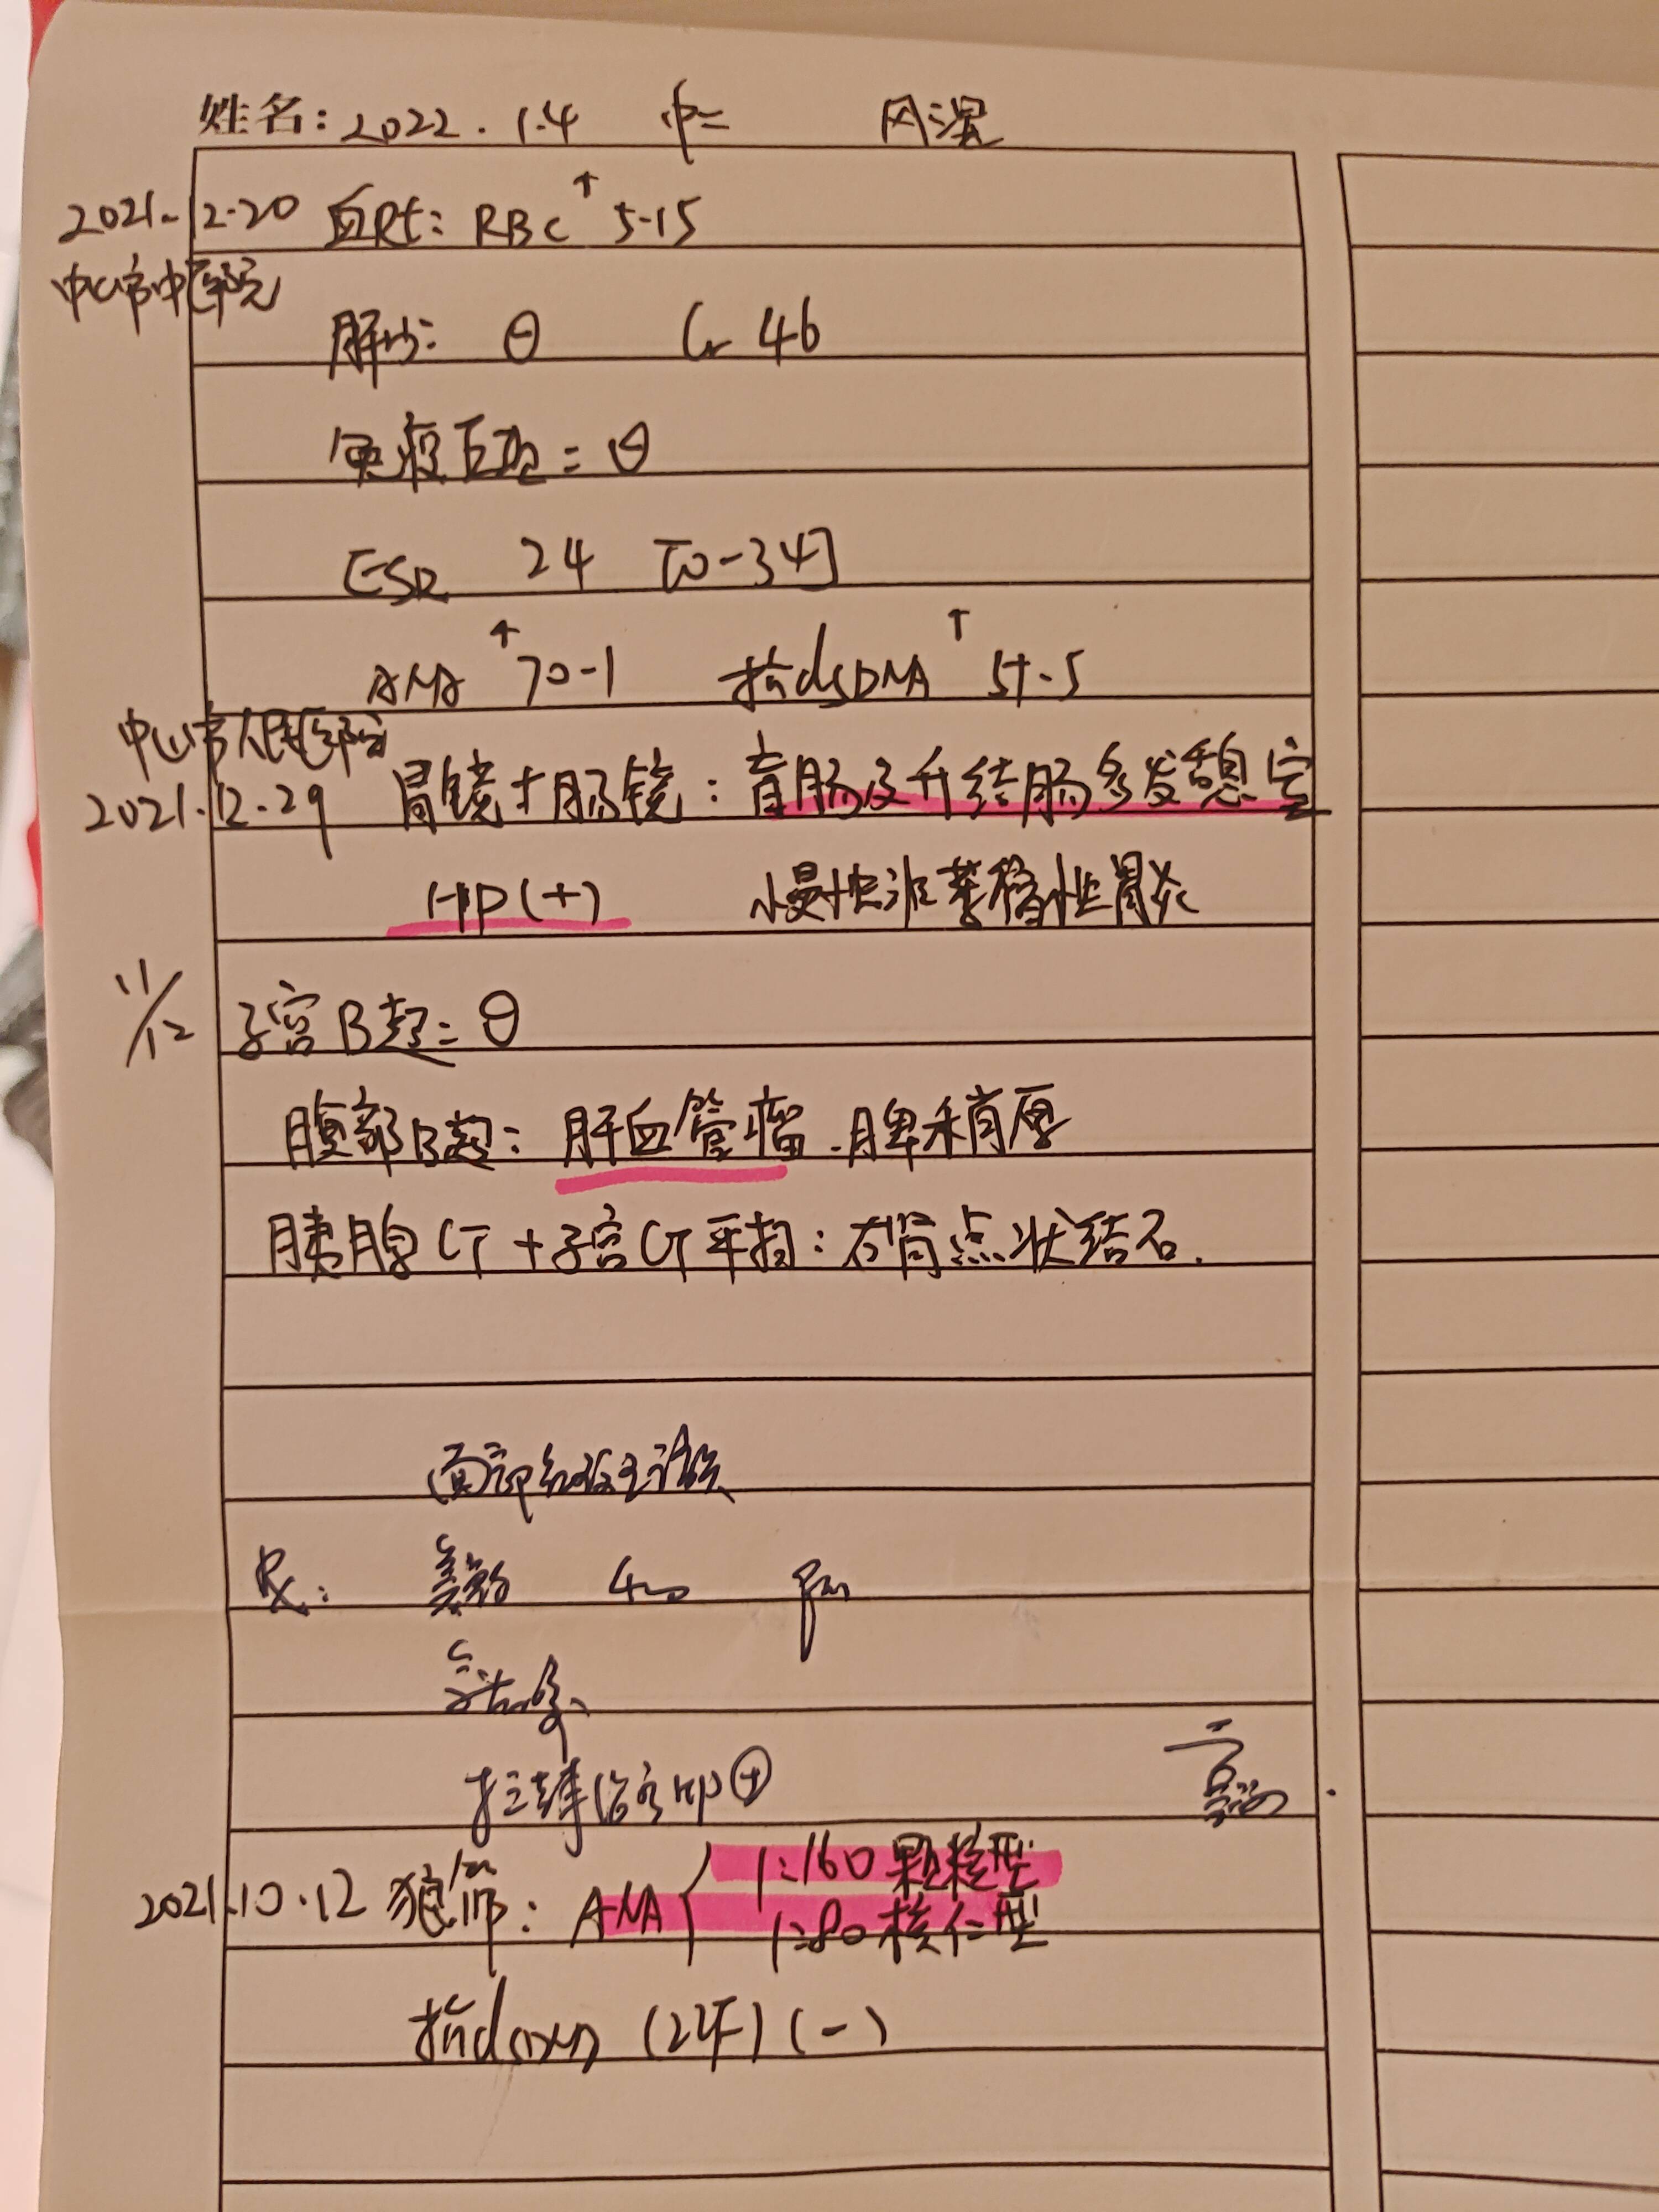 姓名: 2022.1.4 中二 风湿
2021.12.20 血Rt: RBC↑ 5.15
中山市中医院
肝功: ⊖ Cr 46
免疫五项: ⊖
ESR 24 [0-34]
ANA↑ 70.1 抗dsDNA↑ 57.5
中山市人民医院
2021.12.29 胃镜+肠镜: 盲肠及升结肠多发憩室
HP(+) 慢性非萎缩性胃炎
11/12 子宫B超: ⊖
腹部B超: 肝血管瘤.脾稍厚
胰腺CT+子宫CT平扫: 右肾点状结石.
面部红斑
Rx:
HP⊕
2021.10.12 狼疮: ANA 1:160 颗粒型
1:80 核仁型
抗dsDNA (2项) (-)